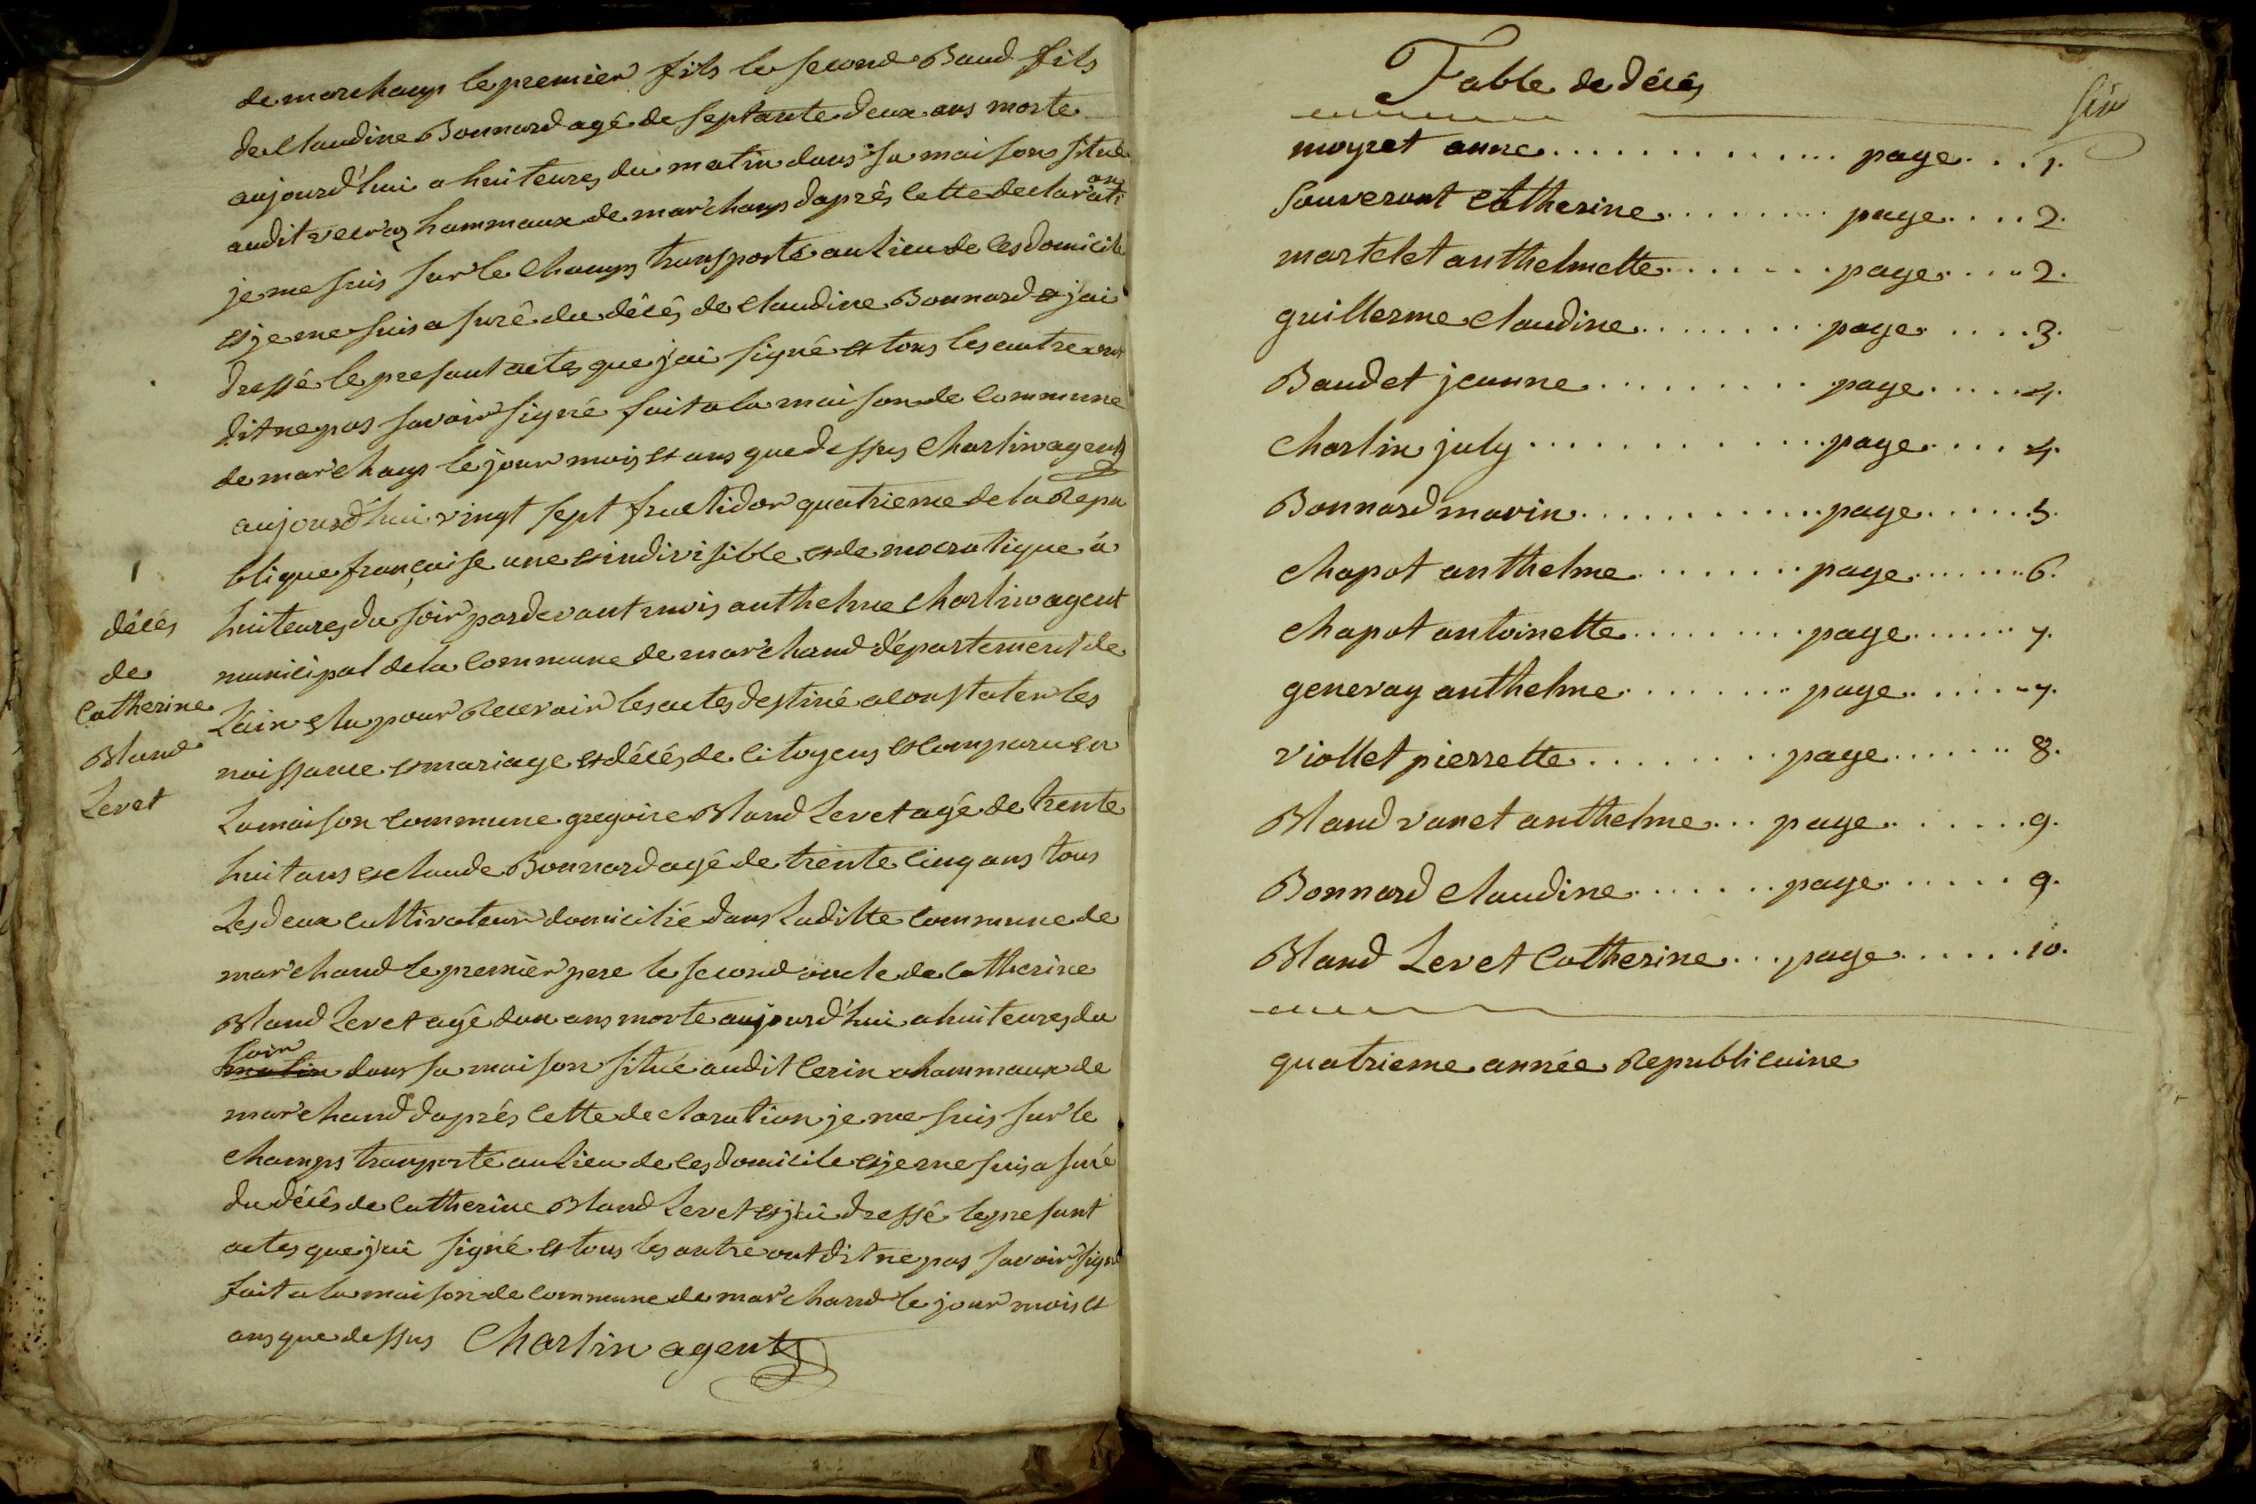 de marchamps le premier fils le second Baud fils
de Claudine Bonnard agé de septante deux ans morte
aujourd'hui a huiteures du matin dans sa maisons situé
audit hammaux de marchamps daprês cette declaration
je me suis sur le champs transporté au lieu de ces domicile
et je me suis asuré du décés de claudine Bonnard et j'ai
dressé le presant actes que j'ai signé et tous les autre ont
dit ne pas savoir signé fait a la maison de commune
de marchamp le jour mois et ans que dessus Charlin agent
aujourd'hui vingt sept fructidor quatrieme de la Repu
blique française une et indivisible et de mocratique à
huiteures du soir pardevant mois anthelme Charlin agent
municipal de la Commune de marchand département de
Lain elu pour Recevoir les actes destiné a constater les
naissance et mariage et décés de citoyens et comparu en
La maison commune gregoire Bland Levet agé de trente
huit ans et claude Bonnard agé de trente cinq ans tous
Les deux cultivateur domicilié dans Laditte commune de
marchand le premier pere le second oncle de Catherine
Bland Levet agé dun ans morte aujourd'hui a huiteures du
soir
matin dans sa maison situé audit cerin hammaux de
marchand daprés cette declaration je me suis sur le
champs transporté au Lieu de ces domicile et je me suis asuré
du décés de Catherine Bland Levet et j'ai dressé le presant
actes que j'ai signé et tous les autre ont dit ne pas savoir signé
fait a la maison de commune de marchand le jour mois et
ans que dessus Charlin agent
décés
de
Catherine
Bland
Levet
Table de décés
moyret anne page 1.
Souverant Catherine page 2.
martelet anthelmette page 2.
guillerme claudine page 3.
Baudet jeanne page 4.
Charlin july page 4.
Bonnard marin page 5.
Chapot anthelme page 6.
Chapot antoinette page 7.
genevay anthelme page 7.
Viollet pierrette page 8.
Bland vanet anthelme page 9.
Bonnard Claudine page 9.
Bland Levet Catherine page 10.
quatrieme année Republicaine